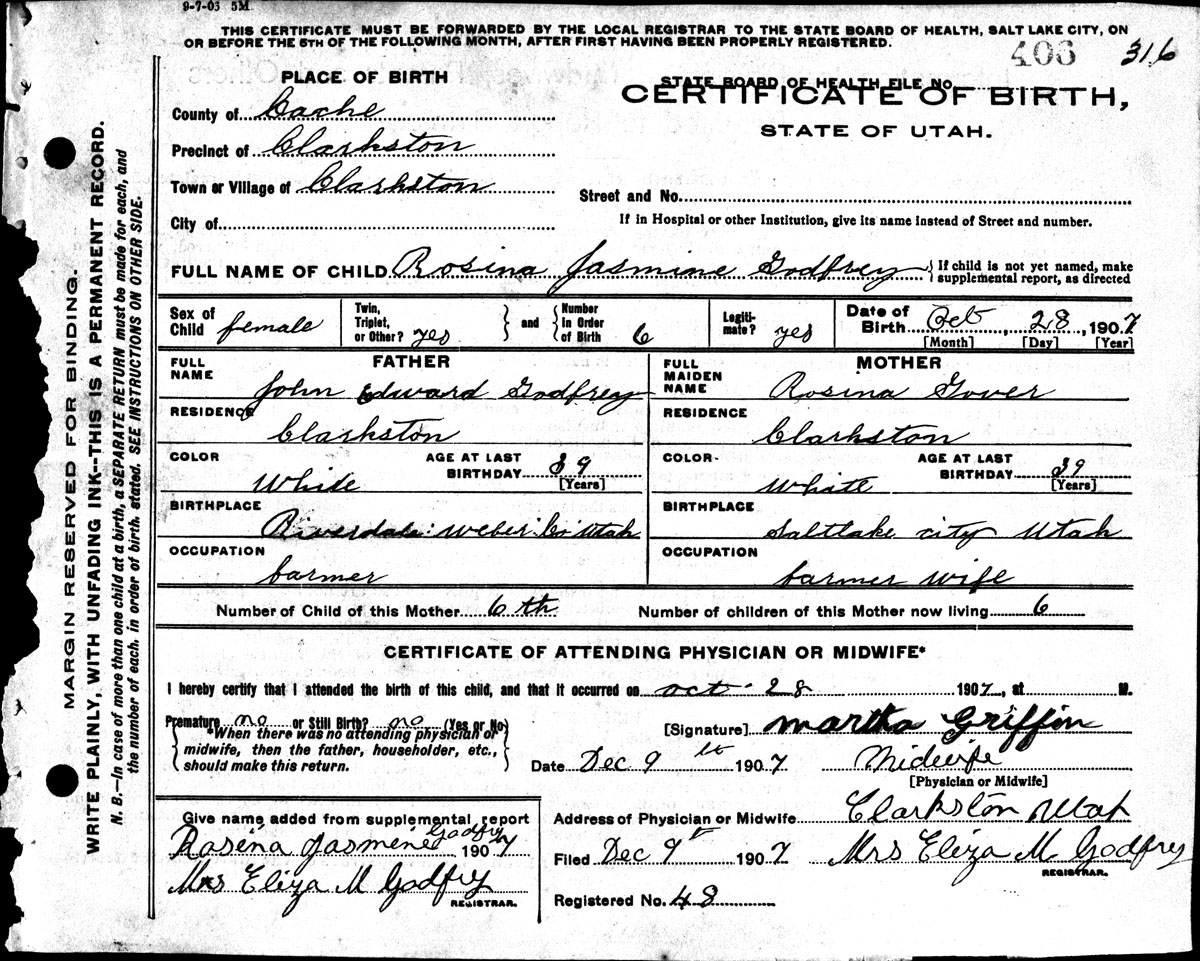 9-7-03 5M
THIS CERTIFICATE MUST BE FORWARDED BY THE LOCAL REGISTRAR TO THE STATE BOARD OF HEALTH, SALT LAKE CITY, ON
OR BEFORE THE 5TH OF THE FOLLOWING MONTH, AFTER FIRST HAVING BEEN PROPERLY REGISTERED.
406 316
PLACE OF BIRTH
STATE BOARD OF HEALTH FILE NO.
CERTIFICATE OF BIRTH,
STATE OF UTAH.
County of Cache
Precinct of Clarkston
Town or Village of Clarkston
Street and No.
City of
If in Hospital or other Institution, give its name instead of Street and number.
FULL NAME OF CHILD Rosina Jasmine Godfrey { If child is not yet named, make
supplemental report, as directed
Sex of Child female Twin, Triplet, or Other? yes and Number in Order of Birth 6 Legitimate? yes Date of Birth Oct, 28, 1907
[Month] [Day] [Year]
FATHER MOTHER
FULL NAME John Edward Godfrey FULL MAIDEN NAME Rosina Gover
RESIDENCE Clarkston RESIDENCE Clarkston
COLOR White AGE AT LAST BIRTHDAY 39 [Years] COLOR White AGE AT LAST BIRTHDAY 39 [Years]
BIRTHPLACE Riverdale: Weber: Co Utah BIRTHPLACE Saltlake city Utah
OCCUPATION farmer OCCUPATION farmer wife
Number of Child of this Mother 6 th Number of children of this Mother now living 6
CERTIFICATE OF ATTENDING PHYSICIAN OR MIDWIFE*
I hereby certify that I attended the birth of this child, and that it occurred on oct. 28 1907, at M.
Premature no or Still Birth? no (Yes or No)
[Signature] Martha Griffin
{ *When there was no attending physician or
midwife, then the father, householder, etc.,
should make this return. }
Date Dec 9 1907 Midwife
[Physician or Midwife]
Give name added from supplemental report
Address of Physician or Midwife Clarkston Utah
Rosena Jasmine Godfrey 1907
Filed Dec 9th 1907 Mrs Eliza M Godfrey
REGISTRAR.
Mrs Eliza M Godfrey
REGISTRAR.
Registered No. 48
MARGIN RESERVED FOR BINDING.
WRITE PLAINLY, WITH UNFADING INK--THIS IS A PERMANENT RECORD.
N. B.--In case of more than one child at a birth, a SEPARATE RETURN must be made for each, and
the number of each, in order of birth, stated. SEE INSTRUCTIONS ON OTHER SIDE.